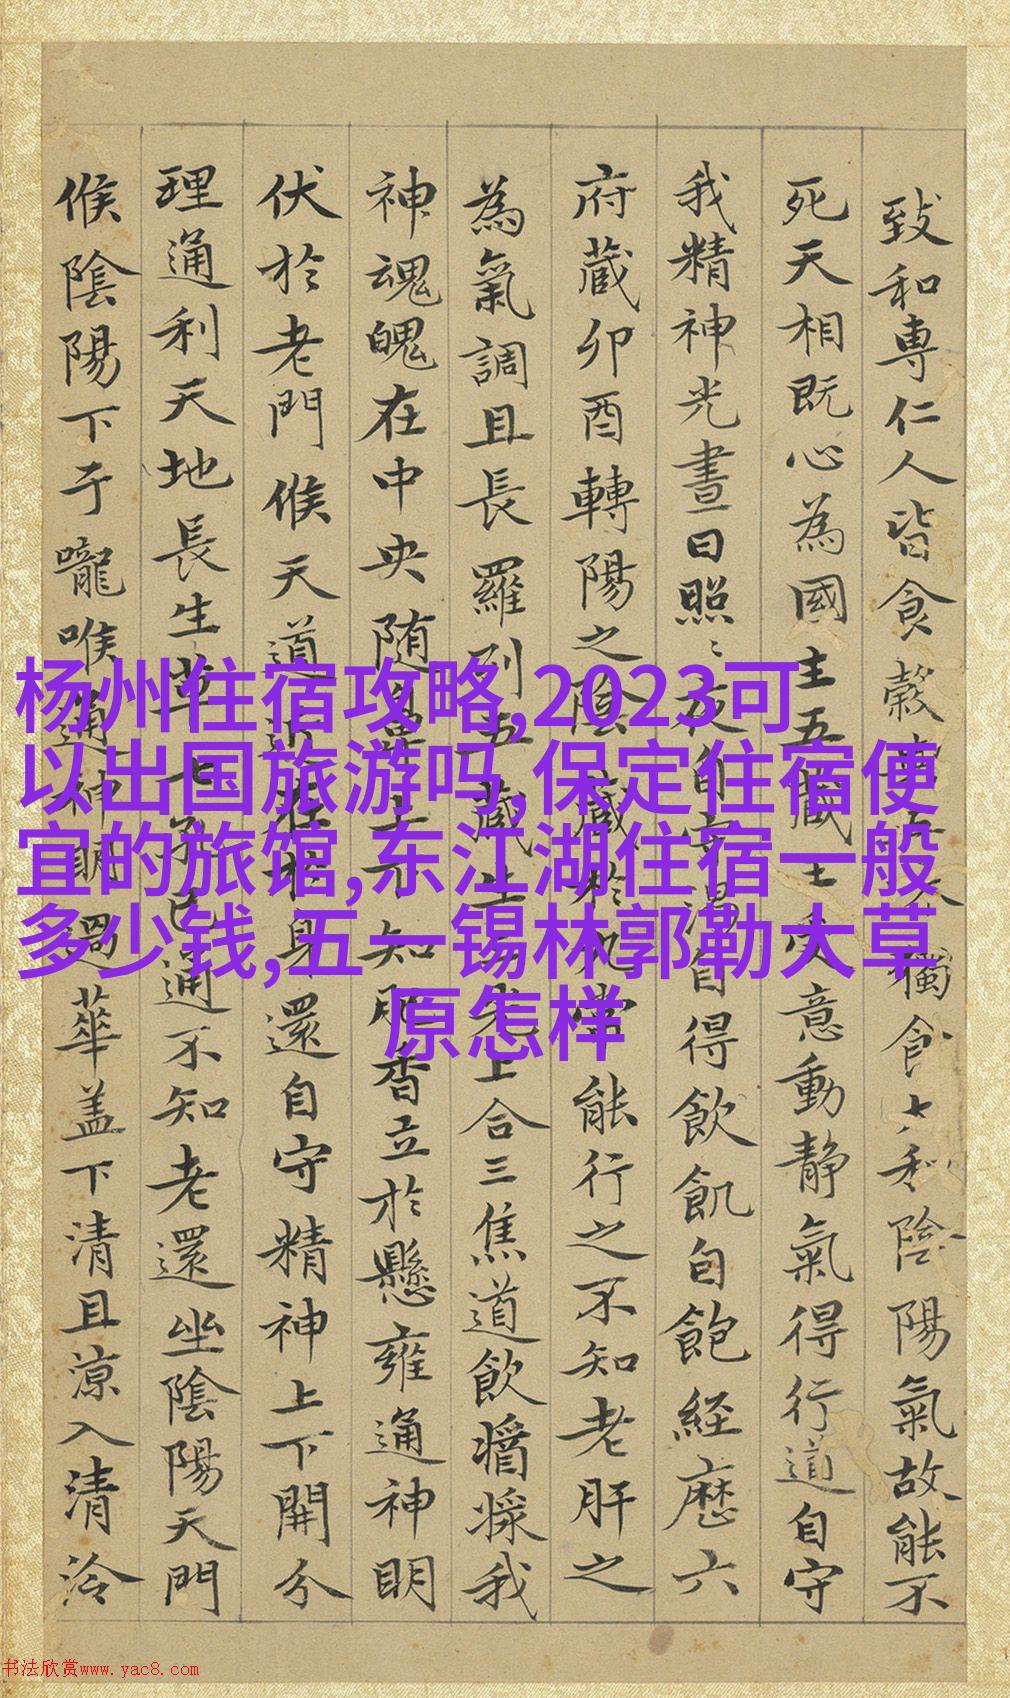 致和専仁人皆食穀
獨食太和陰陽氣故能不
死天相既心為國主五藏
意動静氣得行道自守
我精神光晝日照〻夜自守渴自得飲飢自飽経歷六
府藏卯酉轉陽之陰藏於九常能行之不知老肝之
為氣調且長羅列五藏
上合三焦道飲醬漿我
神魂魄在中央随鼻上下知肥香立於懸雍通神明
伏於老門候天道近在於身還自守精神上下開分
理通利天地長生草七孔已通不知老還坐陰陽天門
候陰陽下于嚨喉通神明過華盖下清且凉入清泠
杨州住宿攻略,2023可
以出国旅游吗,保定住宿便
宜的旅馆,东江湖住宿一般
多少钱,五一锡林郭勒大草
原怎样
书法欣赏www.yac8.com